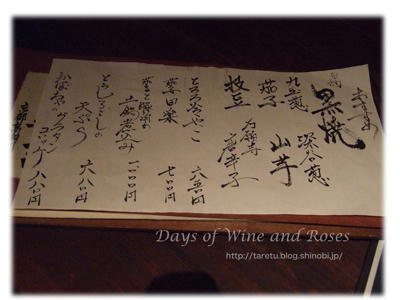 おすすめ
黒焼
九条葱 深谷葱
茄子 山芋
枝豆 万願寺唐辛子
とろろやっこ 六五〇円
田楽 七〇〇円
土鍋煮込み 一〇〇〇円
とうもろこしの天ぷら 六八〇円
かぼちゃのグラタンコロッケ 八八〇円
Days of Wine and Roses
http://taretu.blog.shinobi.jp/